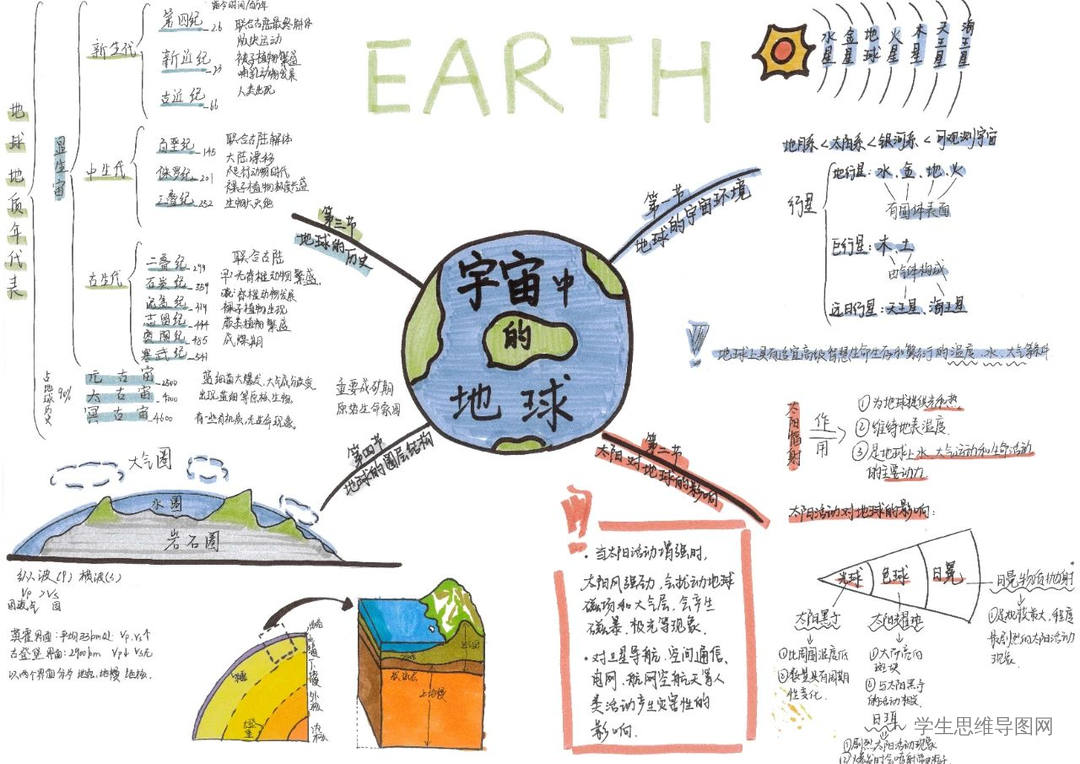 EARTH
宇宙中
的
地球
第一节
地球的宇宙环境
水星 金星 地球 火星 木星 天王星 海王星
地月系<太阳系<银河系<可观测宇宙
行星
地行星:水、金、地、火
有固体表面
巨行星:木、土
由气体构成
远日行星:天王星、海王星
地球上具有适宜高级智慧生命生存和繁衍的温度、水、大气等条件
第二节
太阳对地球的影响
太阳辐射
作用
①为地球提供光和热
②维持地表温度
③是地球上水、大气运动和生命活动
的主要动力
太阳活动对地球的影响:
光球 色球 日冕
日冕物质抛射
太阳黑子
①比周围温度低
②数量具有周期
性变化.
②与太阳黑子
日珥
现象.
·当太阳活动增强时,
太阳风强劲,会扰动地球
磁场和大气层,会产生
磁暴、极光等现象.
·对卫星导航,空间通信,
电网,航网空航天等人
类活动产生灾害性的
影响.
第三节
地球的历史
地球地质年代表
显生宙
新生代
第四纪 2.6
联合古陆最终解体
新近纪 23
被子植物繁盛
哺乳动物发展
古近纪 66
人类出现
中生代
白垩纪 145
联合古陆解体
大陆漂移
侏罗纪 201
爬行动物时代
裸子植物极度兴盛
三叠纪 252
古生代
二叠纪 299
联合古陆
石炭纪 359
早:无脊椎动物繁盛.
泥盆纪 419
裸子植物出现
志留纪 444
蕨类植物繁盛
奥陶纪 485
成煤期
寒武纪 541
占地球历史90%
元古宙 2500
蓝细菌大爆发,大气成分改变
太古宙 4000
出现蓝细等原核生物
冥古宙 4600
有一些有机质,无生命现象.
重要成矿期
第四节
地球的圈层结构
大气圈
水圈
岩石圈
纵波(P) 横波(S)
Vp >Vs
古登堡界面:2900km
地幔
上地幔
学生思维导图网